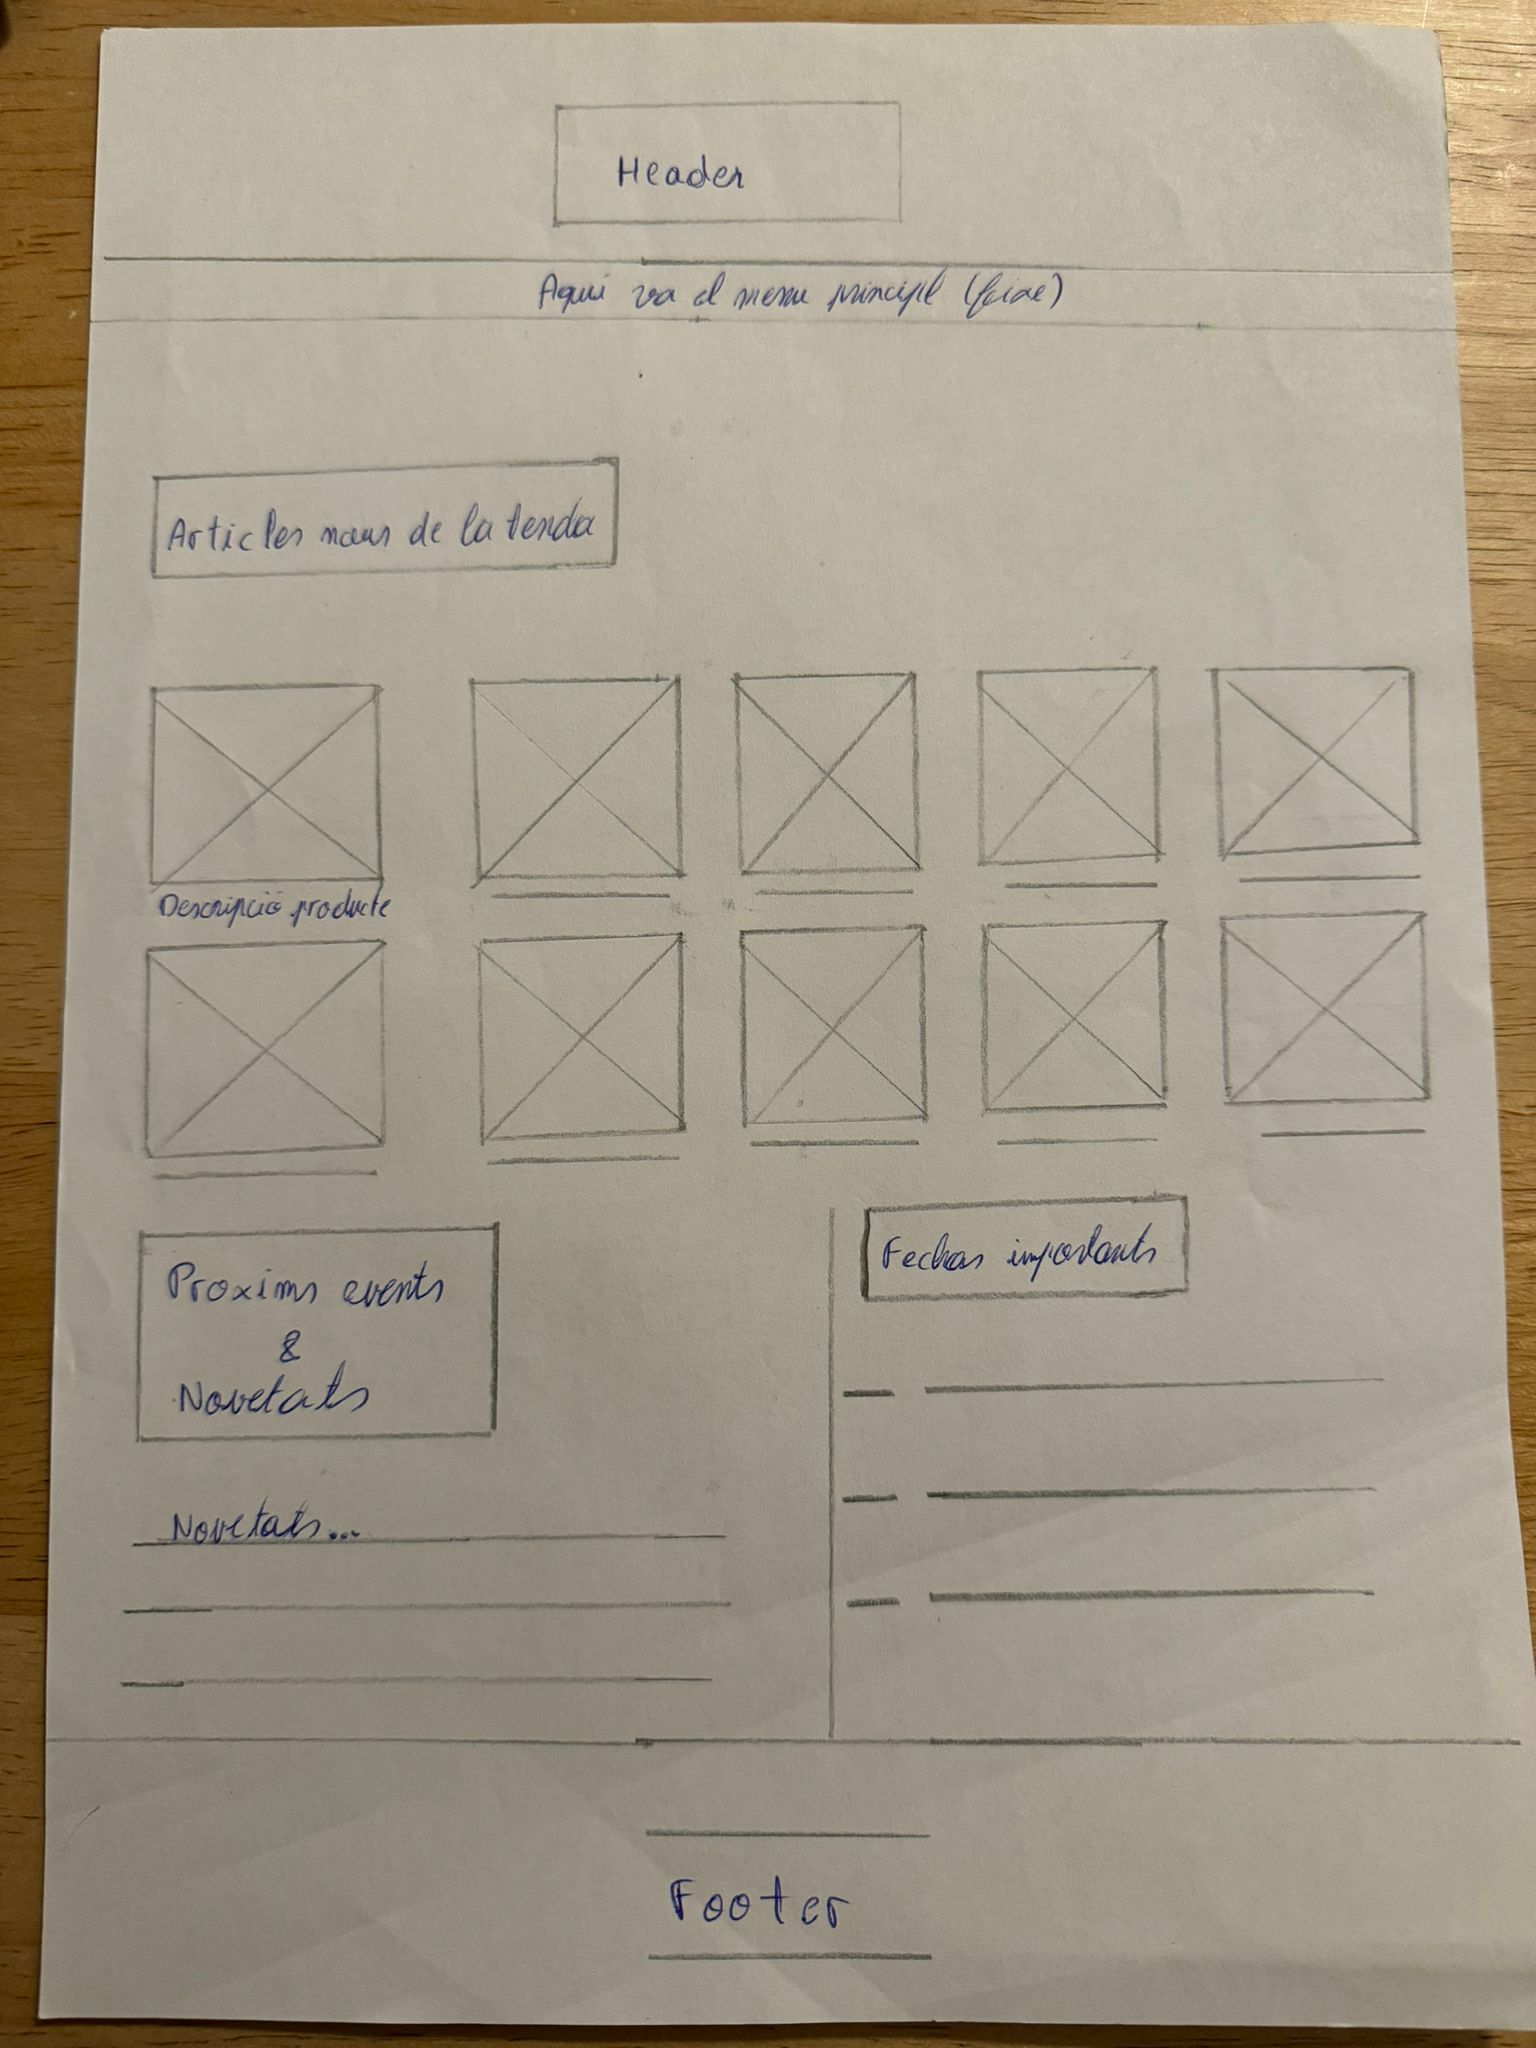 Header
Aqui va el menu principal
Articles nous de la tenda
Descripció producte
Proxims events
&
Novetats
Fechas importants
Novetats...
Footer